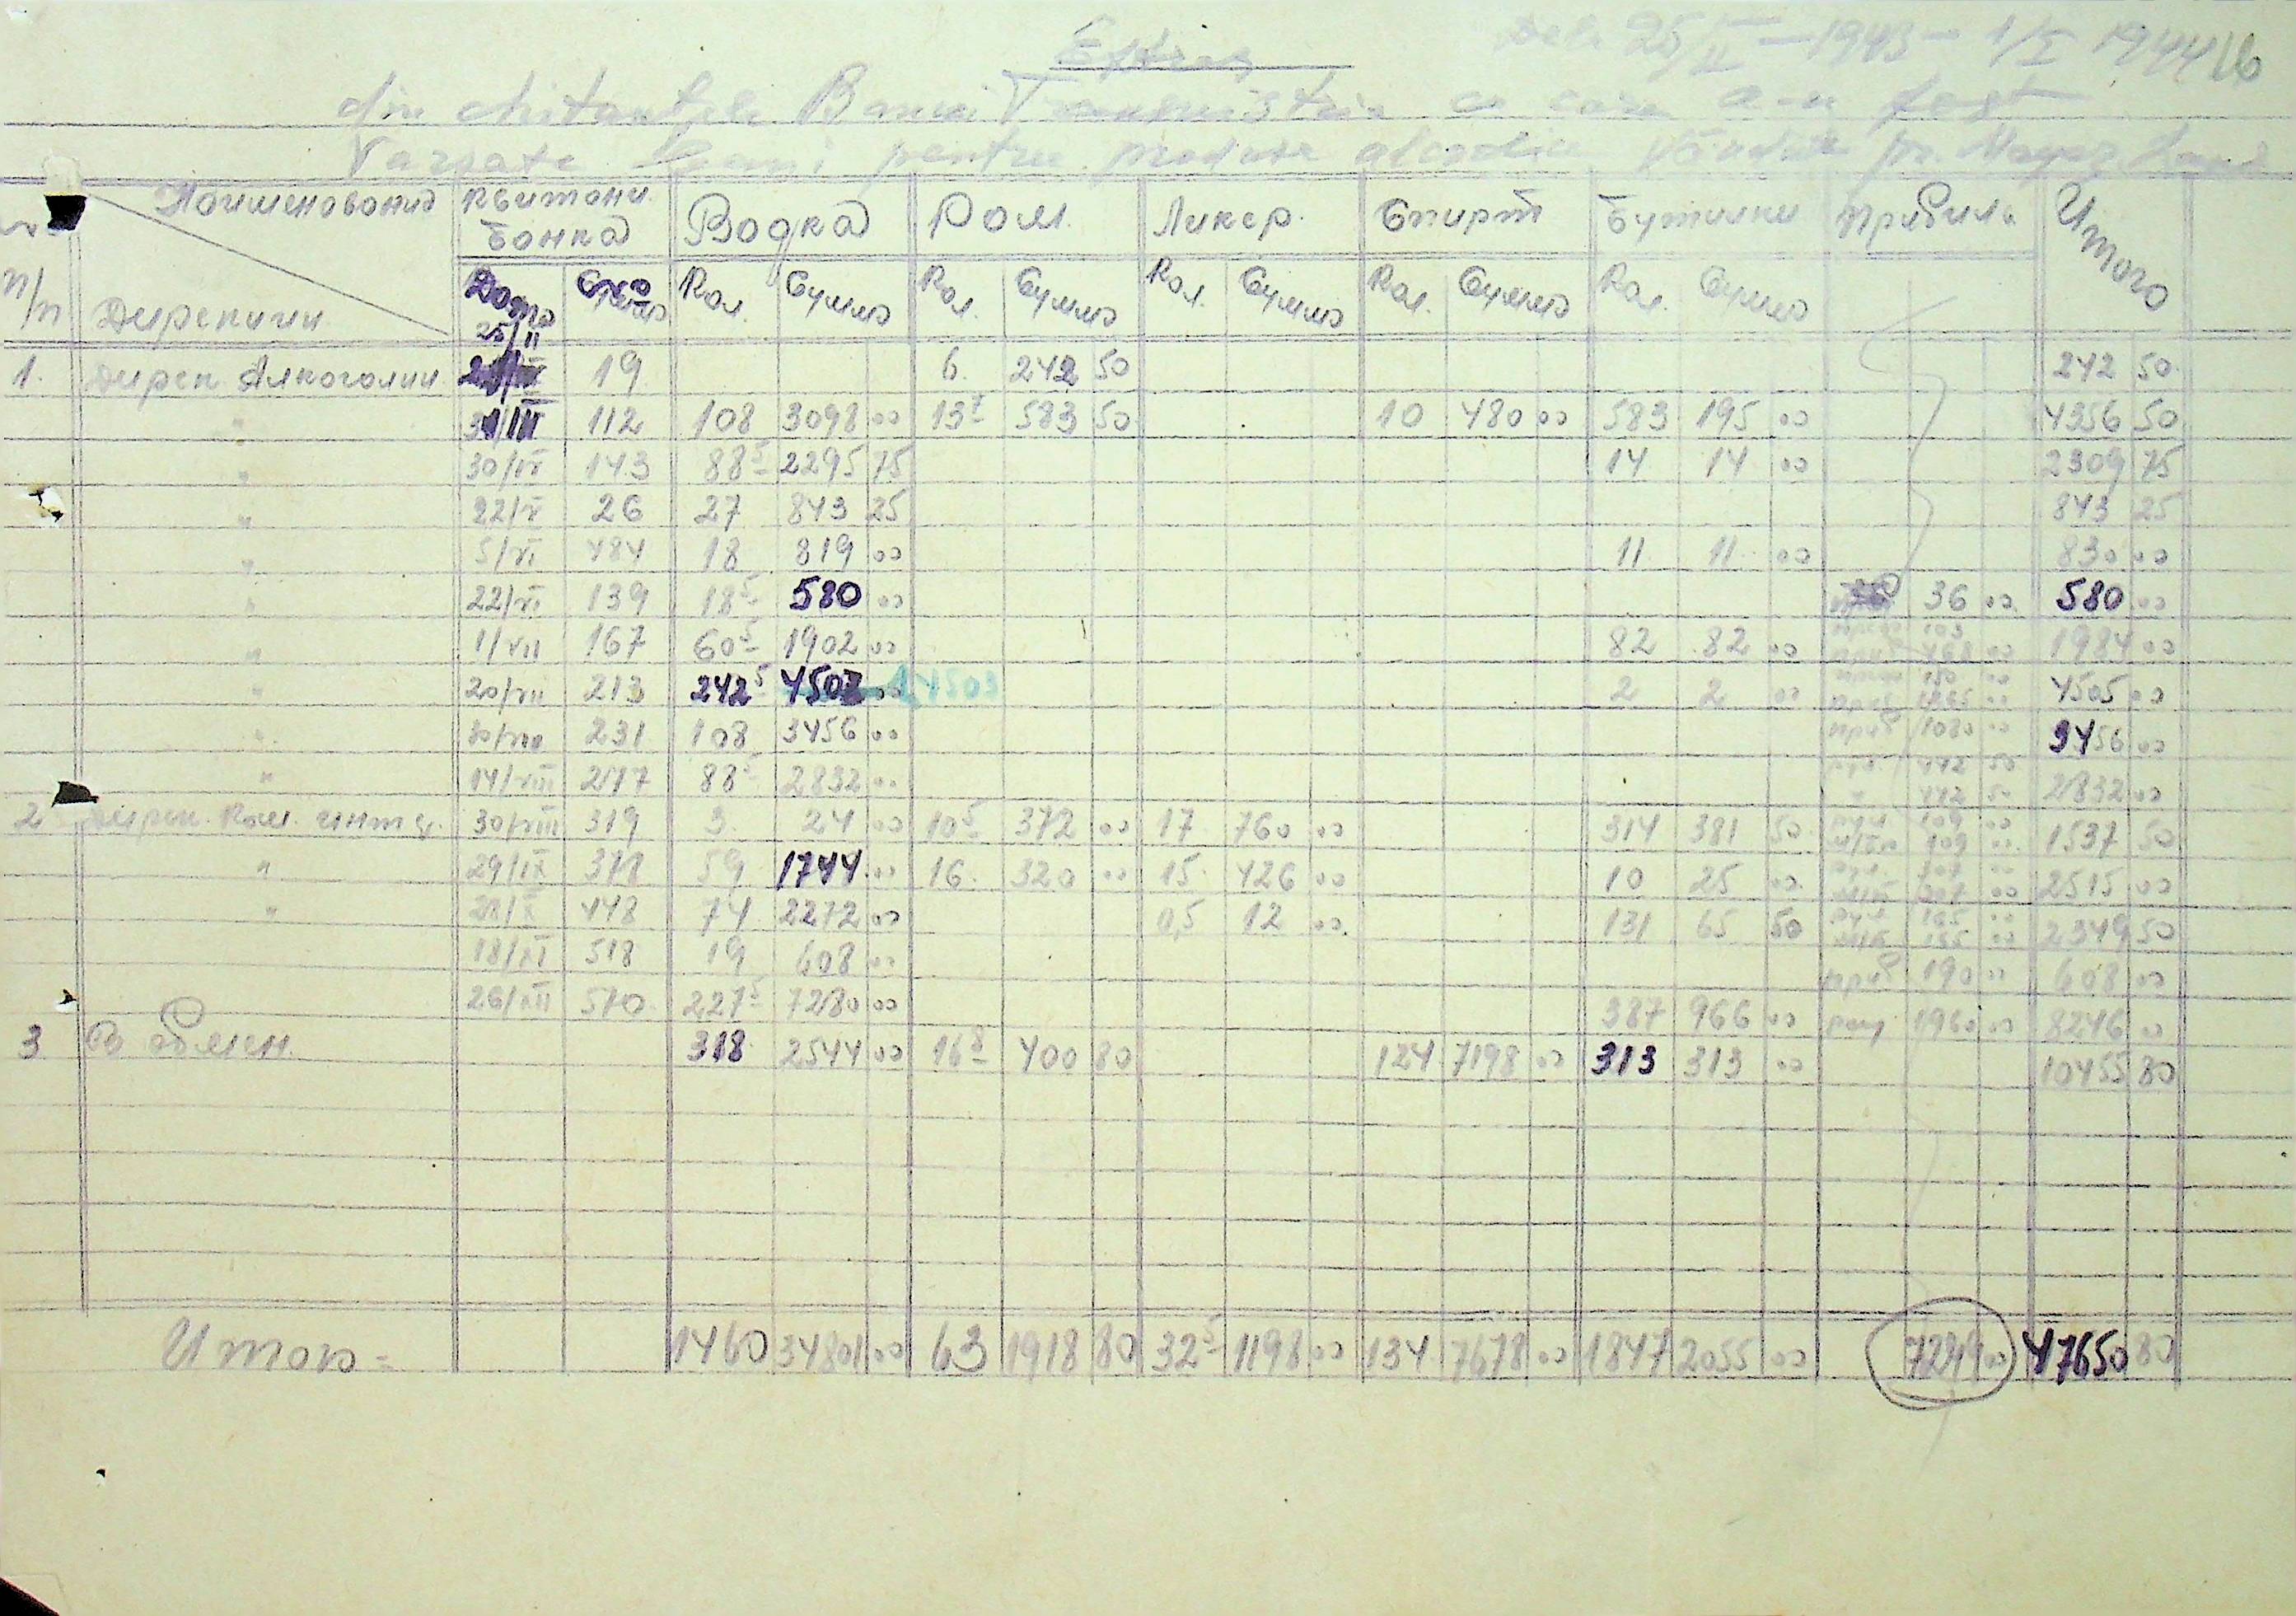 Dela 25/II – 1943 – 1/I 1944 16
Extras
din chitanțele Bancii Transnistria cu care a-u fost
Varsate banii pentru produse alcoolice Vândute
Наименования Квитанц. Банка Водка Ром. Ликер. Спирт Бутылки Прибыль Итого
п/п Дирекции Дата Кол. Сумма Кол. Сумма Кол. Сумма Кол. Сумма Кол. Сумма
25/II
1. Дирек. Алкоголии 19 6. 242 50 242 50
" 31/III 112 108 3098 00 583 50 10 480 00 583 195 00 4356 50
" 30/IV 143 88⁵ 2295 75 14 14 00 2309 75
" 22/V 26 27 843 25 843 25
" 5/VI 484 18 819 00 11 11 00 830 00
" 22/VI 139 18⁵ 580 00 36 00 580 00
" 1/VII 167 60⁵ 1902 00 82 82 00 1984 00
" 20/VII 213 242⁵ 4503 00 4503 2 2 00 4505 00
" 30/VII 231 108 3456 00 приб 1080 00 3456 00
" 14/VIII 88⁵ 2832 00 442 50 2832 00
442 50
2 Дирек. Ком. 30/VIII 319 3. 24 00 10⁵ 372 00 17 760 00 314 381 50 109 00 1537 50
" 29/IX 59 1744 00 16. 320 00 15. 426 00 10 25 00 2515 00
" 448 74 2272 00 0,5 12 00 131 65 50 2349 50
18/XI 518 19 608 00 приб 190 00 608 00
26/XII 570 227⁵ 7280 00 387 966 00 1960 00 8246 00
3 В обмен. 318 2544 00 16⁸ 400 80 124 7198 00 313 313 00 10455 80
Итого = 1460 34801 00 63 1918 80 32⁵ 1198 00 134 7678 00 1847 2055 00 47650 80